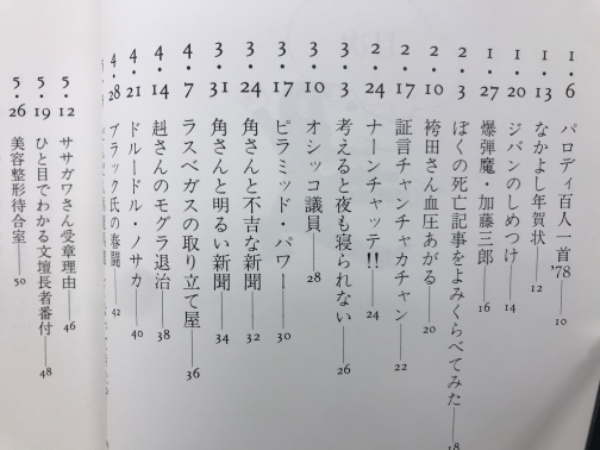 1・6 パロディ百人一首'78——10
1・13 なかよし年賀状——12
1・20 ジバンのしめつけ——14
1・27 爆弾魔・加藤三郎——16
2・3 ぼくの死亡記事をよみくらべてみた——18
2・10 袴田さん血圧あがる——20
2・17 証言チャンチャカチャン——22
2・24 ナーンチャッテ!!——24
3・3 考えると夜も寝られない——26
3・10 オシッコ議員——28
3・17 ピラミッド・パワー——30
3・24 角さんと不吉な新聞——32
3・31 角さんと明るい新聞——34
4・7 ラスベガスの取り立て屋——36
4・14 赳さんのモグラ退治——38
4・21 ドルードル・ノサカ——40
4・28 ブラック氏の春闘——42
5・12 ササガワさん受章理由——46
5・19 ひと目でわかる文壇長者番付——48
5・26 美容整形待合室——50